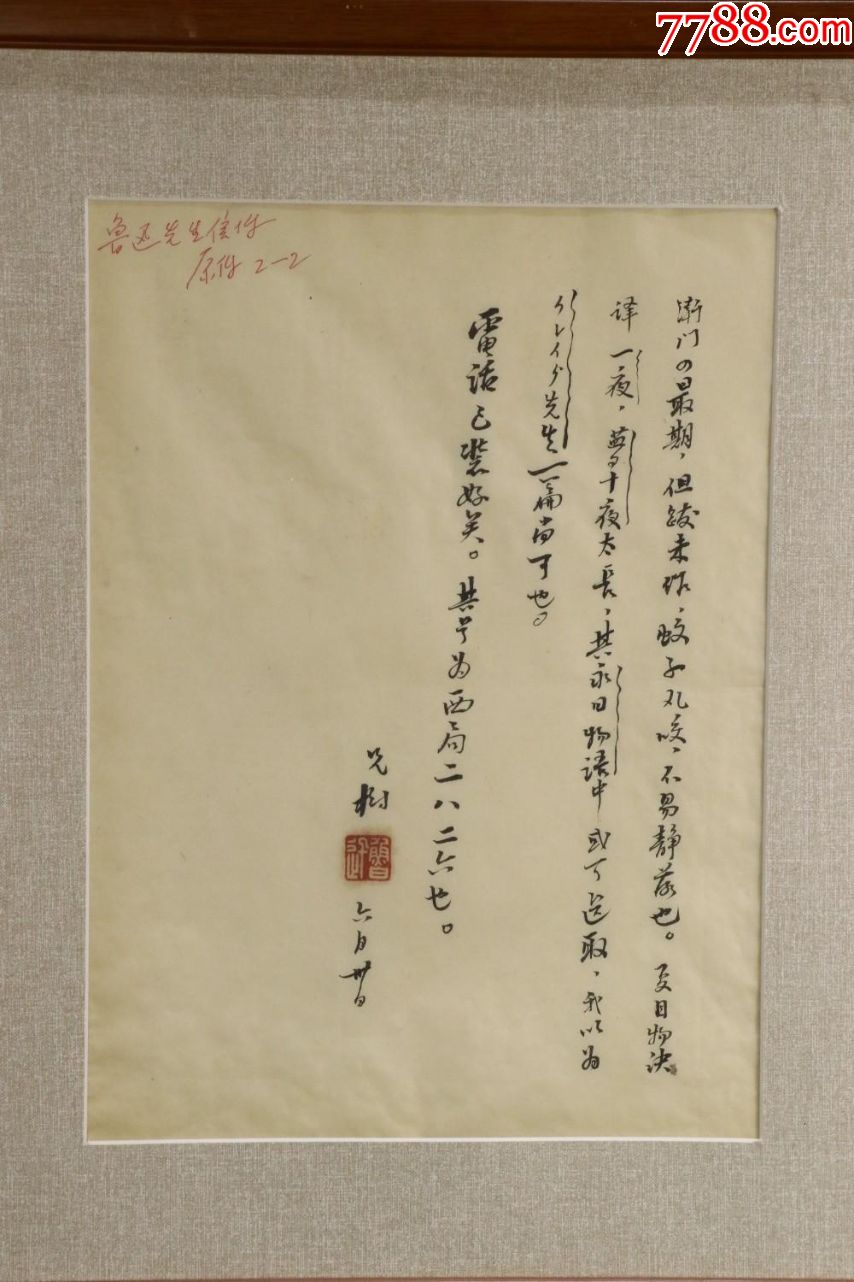 7788.com
鲁迅先生信件
原件2-2
衛门の最期，但跋未作，蚊子乱咬，不易静落也。夏目物决
译一夜，夢十夜太長，其永日物語中或可选取，我以为
クレイグ先生一篇尚可也。
電話已裝好矣。其号为西局二八二六也。
兄樹
魯迅
六月卅日